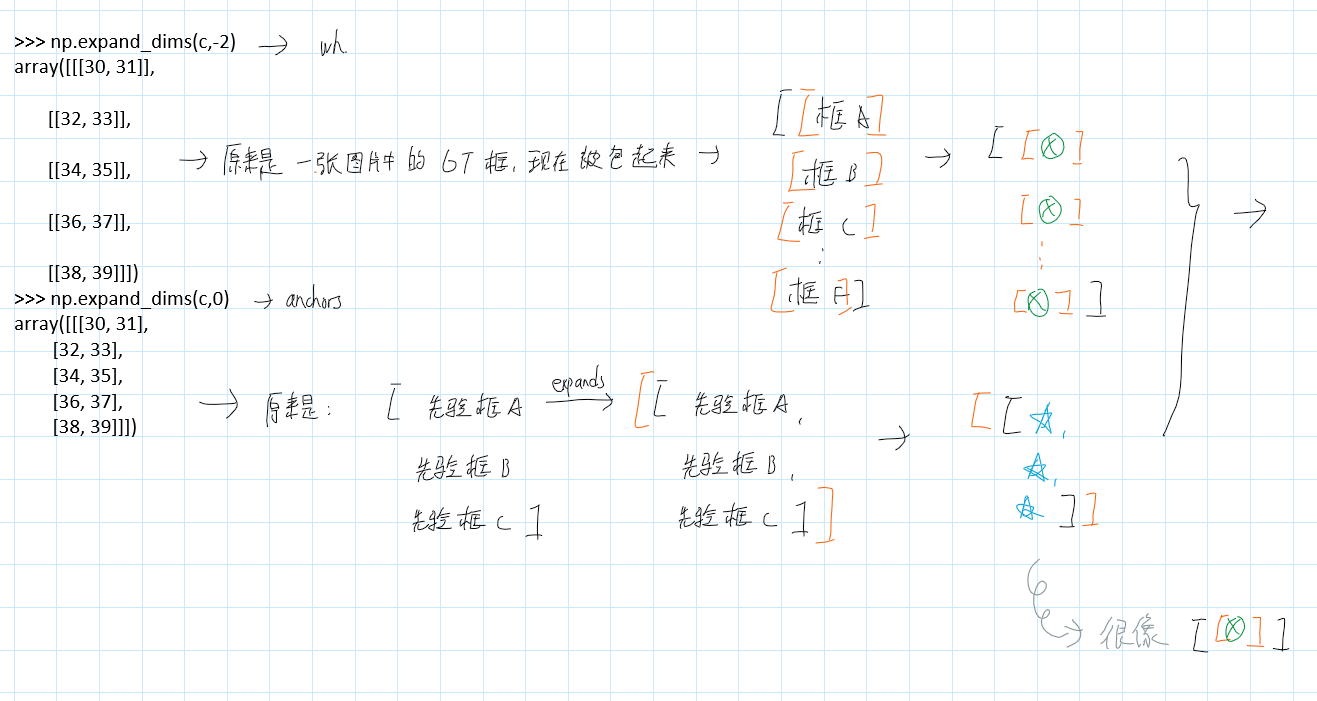 >>> np.expand_dims(c,-2) → wh.
array([[[30, 31]],
[[32, 33]],
[[34, 35]],
[[36, 37]],
[[38, 39]]])
→ 原来是一张图片中的 GT 框, 现在被包起来 →
[[框 A]
[框 B]
[框 C]
⋮
[框 H]]
→ [[ⓧ]
[ⓧ]
⋮
[ⓧ]]
→
>>> np.expand_dims(c,0) → anchors
array([[[30, 31],
[32, 33],
[34, 35],
[36, 37],
[38, 39]]])
→ 原来是:
[ 先验框 A
先验框 B
先验框 C ]
expands
[[ 先验框 A,
先验框 B,
先验框 C ]]
→ [[☆,
☆,
☆]]
→ 很像 [[ⓧ]]